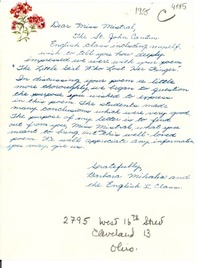 1955 C 4115
Dear Miss Mistral,
The St. John Cantius
English Class including myself,
wish to tell you how deeply
impressed we were with your poem
"The Little Girl Who Lost Her Finger."
In discussing your poem a little
more thoroughly, we began to question
the purpose you wished to express
in this poem. The students made
many conclusions which were very good.
The purpose of my letter is to find
out from you, Miss Mistral, what you
meant to bring out in this well-liked
poem. We will appreciate any information
you may give us.
Gratefully,
Barbara Mihalic and
the English I Class.
2795 West 16th Street
Cleveland 13
Ohio.